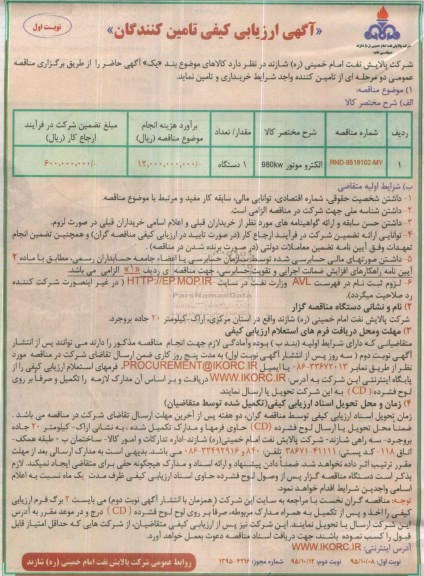 نوبت اول
«آگهی ارزیابی کیفی تامین کنندگان»
شرکت پالایش نفت امام خمینی (ره) شازند
شرکت پالایش نفت امام خمینی (ره) شازند در نظر دارد کالاهای موضوع بند «یک» آگهی حاضر را از طریق برگزاری مناقصه
عمومی دو مرحله ای از تامین کننده واجد شرایط خریداری و تامین نماید.
۱) موضوع مناقصه:
الف) شرح مختصر کالا
ردیف	شماره مناقصه	شرح مختصر کالا	مقدار/ تعداد	برآورد هزینه انجام موضوع مناقصه (ریال)	مبلغ تضمین شرکت در فرآیند ارجاع کار (ریال)
۱	RND-9518102-MY	الکترو موتور 980kw	۱ دستگاه	۱۲,۰۰۰,۰۰۰,۰۰۰/-	۶۰۰,۰۰۰,۰۰۰/-
ب) شرایط اولیه متقاضی
۱- داشتن شخصیت حقوقی، شماره اقتصادی، توانایی مالی، سابقه کار مفید و مرتبط با موضوع مناقصه.
۲- داشتن شناسه ملی جهت شرکت در مناقصه الزامی است.
۳- داشتن حسن سابقه و ارائه گواهینامه های مورد نظر از خریداران قبلی و اعلام اسامی خریداران قبلی در صورت لزوم.
۴- توانایی ارائه تضمین شرکت در فرآیند ارجاع کار (در صورت تایید در ارزیابی کیفی مناقصه گران) و همچنین تضمین انجام
تعهدات وفق آیین نامه تضمین معاملات دولتی (در صورت برنده شدن در مناقصه).
۵- داشتن صورتهای مالی حسابرسی شده توسط سازمان حسابرسی یا اعضاء جامعه حسابداران رسمی، مطابق با ماده ۲
آیین نامه راهکارهای افزایش ضمانت اجرایی و تقویت حسابرسی، جهت مناقصه ی ردیف «۱» الزامی می باشد.
۶- لزوم ثبت نام در فهرست AVL وزارت نفت در سایت HTTP://EP.MOP.IR (در غیر اینصورت شرکت کننده
رد صلاحیت میگردد).
۲) نام و نشانی دستگاه مناقصه گزار
شرکت پالایش نفت امام خمینی (ره) شازند واقع در استان مرکزی، اراک، کیلومتر ۲۰ جاده بروجرد.
۳) مهلت و محل دریافت فرم های استعلام ارزیابی کیفی
متقاضیانی که دارای شرایط اولیه (بند ب) بوده و آمادگی لازم جهت انجام مناقصه مذکور را دارند می توانند پس از انتشار
آگهی نوبت دوم (سه روز پس از انتشار آگهی نوبت اول) به مدت پنج روز کاری ضمن ارسال تقاضای شرکت در مناقصه مورد
نظر از طریق نمابر ۳۳۶۷۲۰۱۳-۰۸۶ یا ایمیل PROCUREMENT@IKORC.IR، فرمهای استعلام ارزیابی کیفی را از
پایگاه اینترنتی این شرکت به آدرس WWW.IKORC.IR دریافت و بر اساس آن مدارک لازمه را تکمیل و صرفاً بر روی
لوح فشرده (CD) به این شرکت تحویل یا ارسال نمایند.
۴) زمان و محل تحویل اسناد ارزیابی کیفی (تکمیل شده توسط متقاضیان)
زمان تحویل اسناد ارزیابی کیفی توسط مناقصه گران، دو هفته پس از آخرین مهلت ارسال تقاضای شرکت در مناقصه می باشد.
ضمناً محل تحویل یا ارسال لوح فشرده (CD) حاوی فرمها و مدارک تکمیل شده، به نشانی اراک- کیلومتر ۲۰ جاده
بروجرد- سه راهی شازند- شرکت پالایش نفت امام خمینی (ره) شازند- اداره تدارکات و امور کالا- ساختمان ب- طبقه همکف-
اتاق ۱۱۸- کد پستی: ۴۱۱۱۱-۳۸۶۷۱ تلفن: ۸۴۰ و ۳۳۴۹۲۹۱۶-۰۸۶ می باشد. بدیهی است به مدارک ارسالی بعد از مهلت
مقرر ترتیب اثر داده نخواهد شد. ضمناً دادن پیشنهاد و ارائه اسناد و مدارک هیچگونه حقی برای متقاضی ایجاد نمیکند. لازم
بذکر است دستگاه مناقصه گزار پس از وصول لوح فشرده حاوی اسناد ارزیابی کیفی ظرف مدت یک ماه نسبت به اعلام
اسامی واجدین شرایط اقدام خواهد نمود.
توجه: مناقصه گران نخست با مراجعه به سایت این شرکت (همزمان با انتشار آگهی نوبت دوم) می بایست ۲ برگ فرم ارزیابی
کیفی را اخذ و پس از تکمیل به همراه مدارک مربوطه، صرفاً بر روی لوح فشرده (CD) درج و در موعد مقرر به آدرس
این شرکت ارسال یا تحویل نمایند. این شرکت نیز پس از ارزیابی کیفی متقاضیان، از شرکت هایی که حداقل امتیاز قابل
قبول را کسب نموده باشند، جهت دریافت اسناد مناقصه دعوت بعمل خواهد آورد.
آدرس اینترنتی: WWW.IKORC.IR
نوبت اول: ۹۵/۱۰/۰۸ نوبت دوم: ۹۵/۱۰/۱۲ شماره مجوز: ۱۳۹۵.۴۳۱۶
روابط عمومی شرکت پالایش نفت امام خمینی (ره) شازند